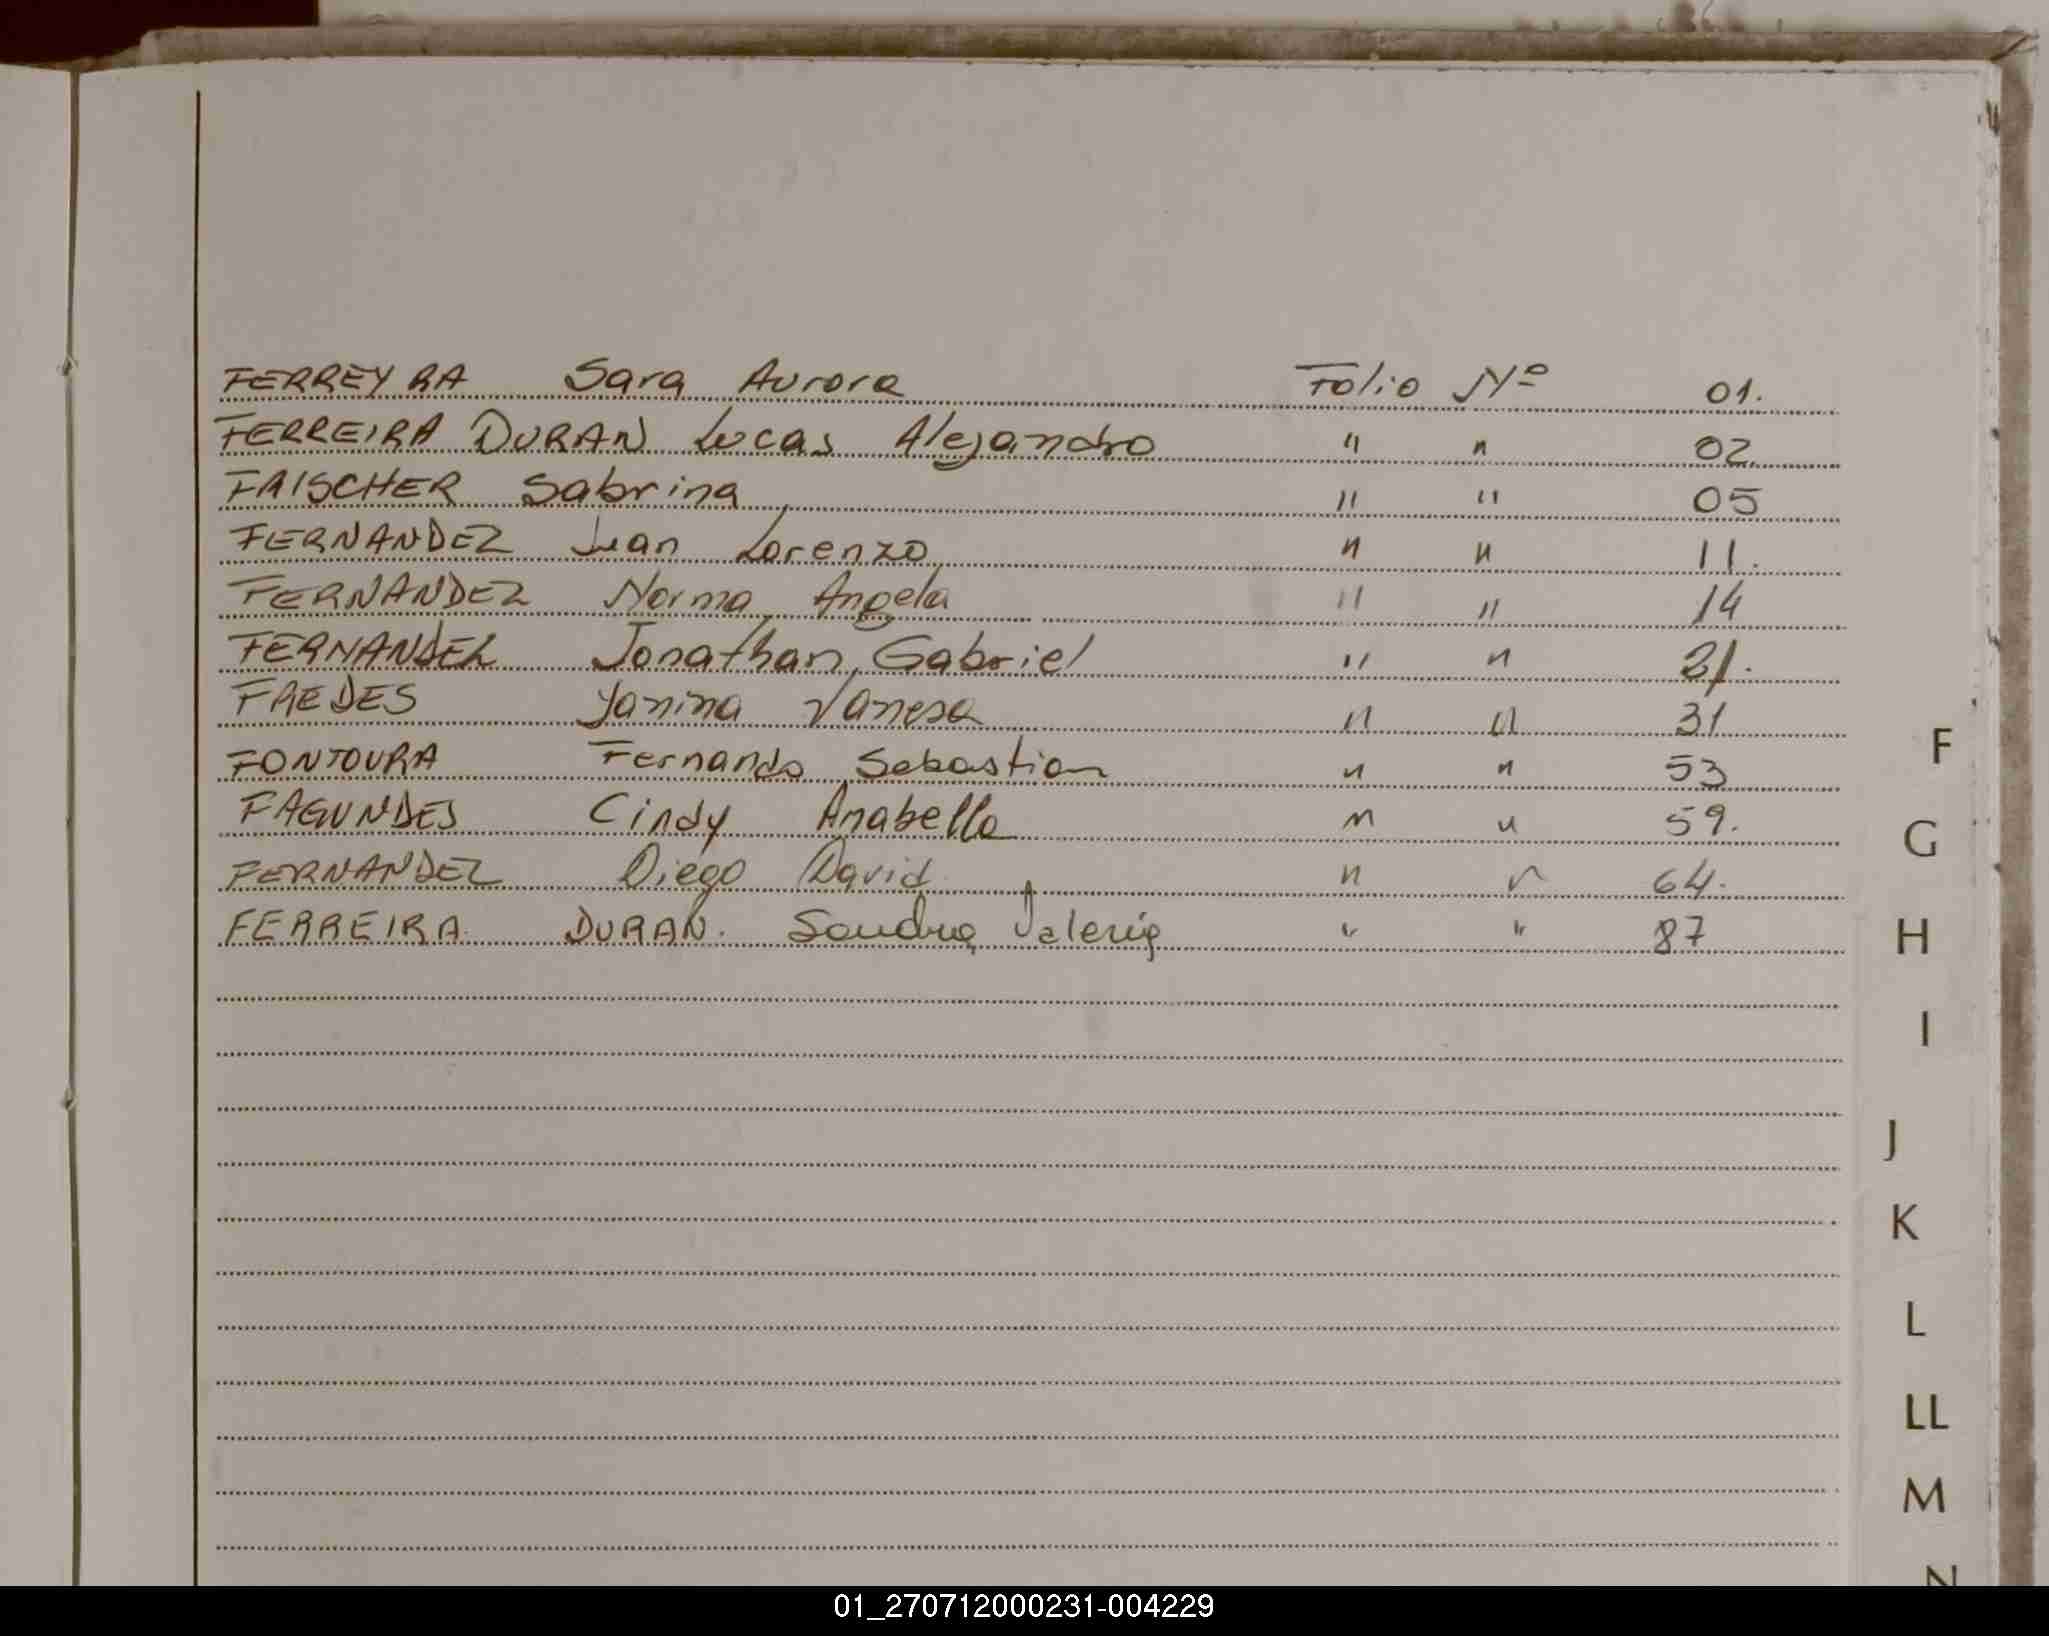 FERREYRA Sara Aurora Folio Nº 01.
FERREIRA DURAN Lucas Alejandro " " 02.
FAISCHER Sabrina " " 05
FERNANDEZ Juan Lorenzo " " 11.
FERNANDEZ Norma Angela " " 14
FERNANDEZ Jonathan Gabriel " " 21.
FAEDES Yanina Vanesa " " 31
FONTOURA Fernando Sebastian " " 53
FAGUNDES Cindy Anabella " " 59.
FERNANDEZ Diego David " " 64.
FERREIRA DURAN. Sandra Valeria " " 87
F
G
H
I
J
K
L
LL
M
N
01_270712000231-004229